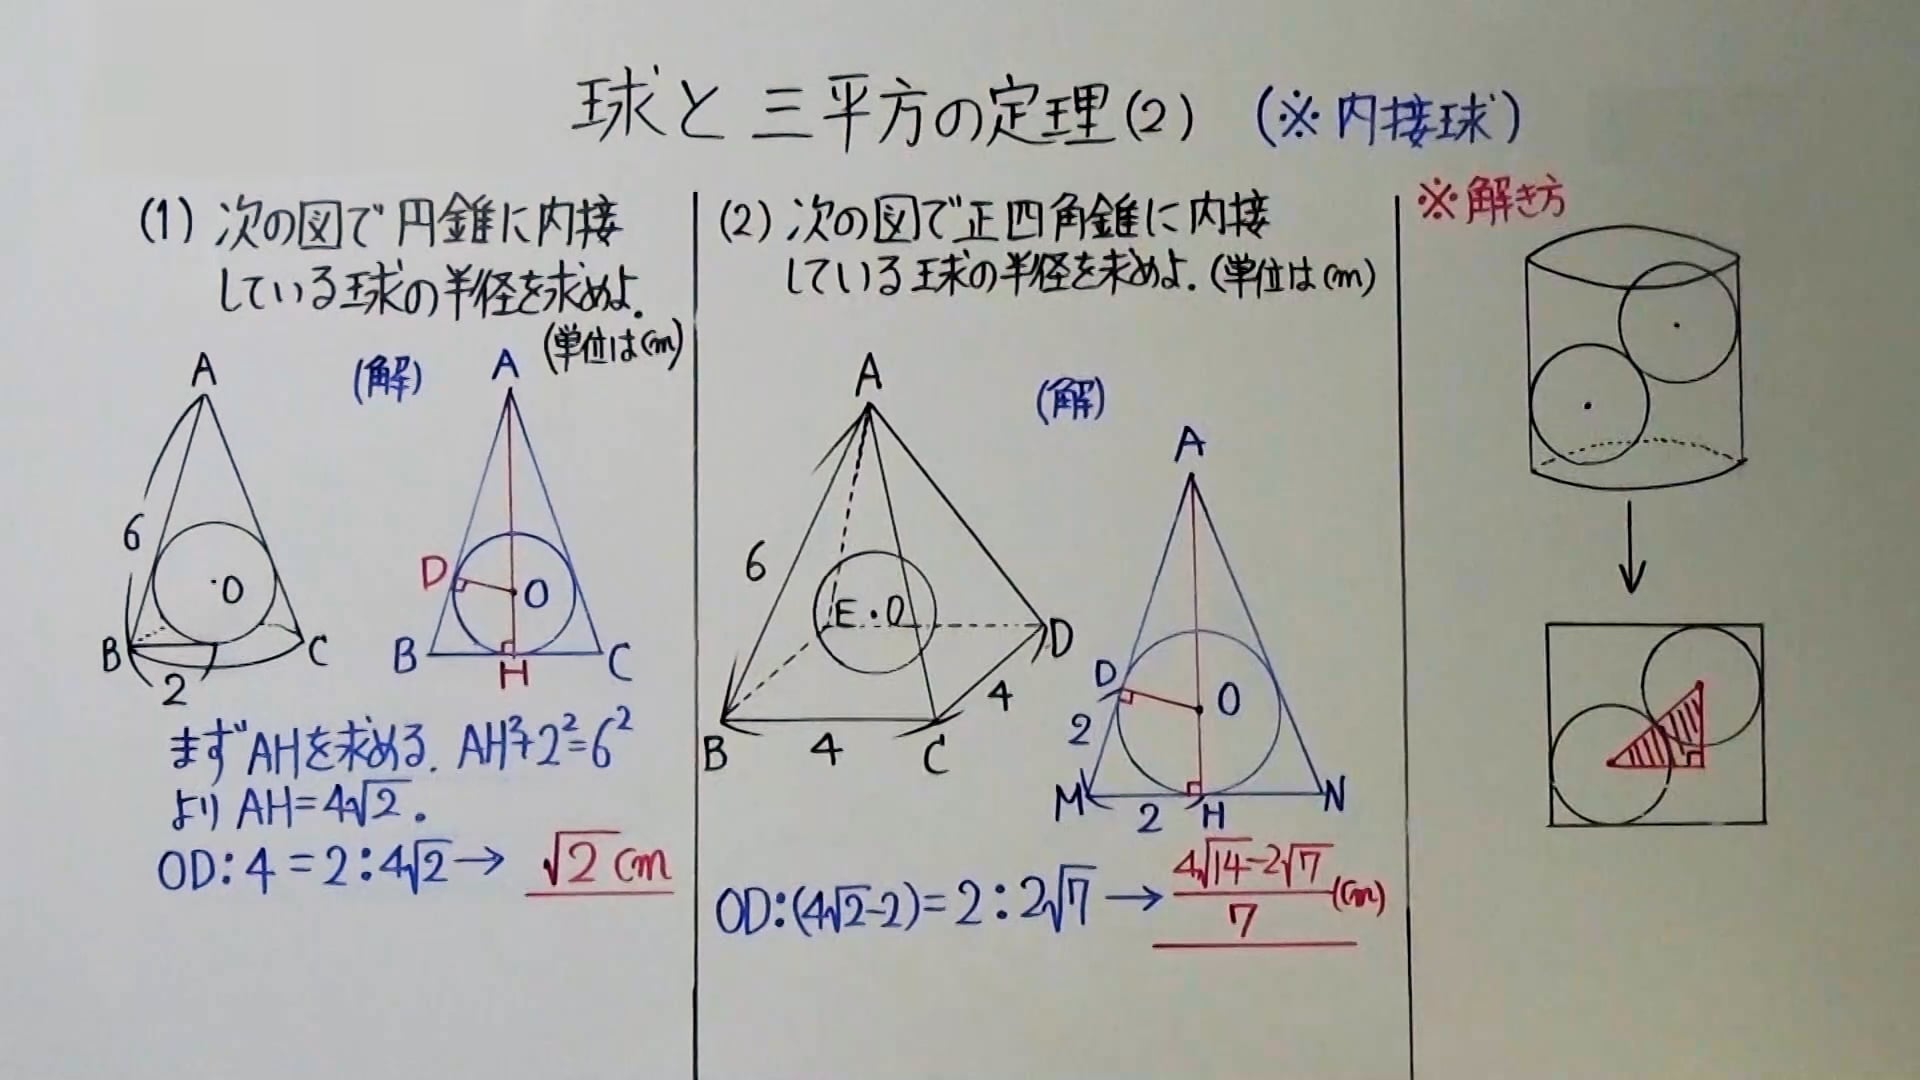 球と三平方の定理(2) (※内接球)
(1) 次の図で円錐に内接
している球の半径を求めよ.
(単位はcm)
A
(解)
A
6
O
D
O
B
C
2
B
H
C
まずAHを求める. AH²+2²=6²
より AH=4√2.
OD:4=2:4√2→ √2cm
(2) 次の図で正四角錐に内接
している球の半径を求めよ. (単位はcm)
A
(解)
A
6
E・O
D
4
B
4
C
D
O
2
M
2
H
N
OD:(4√2-2)=2:2√7→ (4√14-2√7)/7 (cm)
※解き方